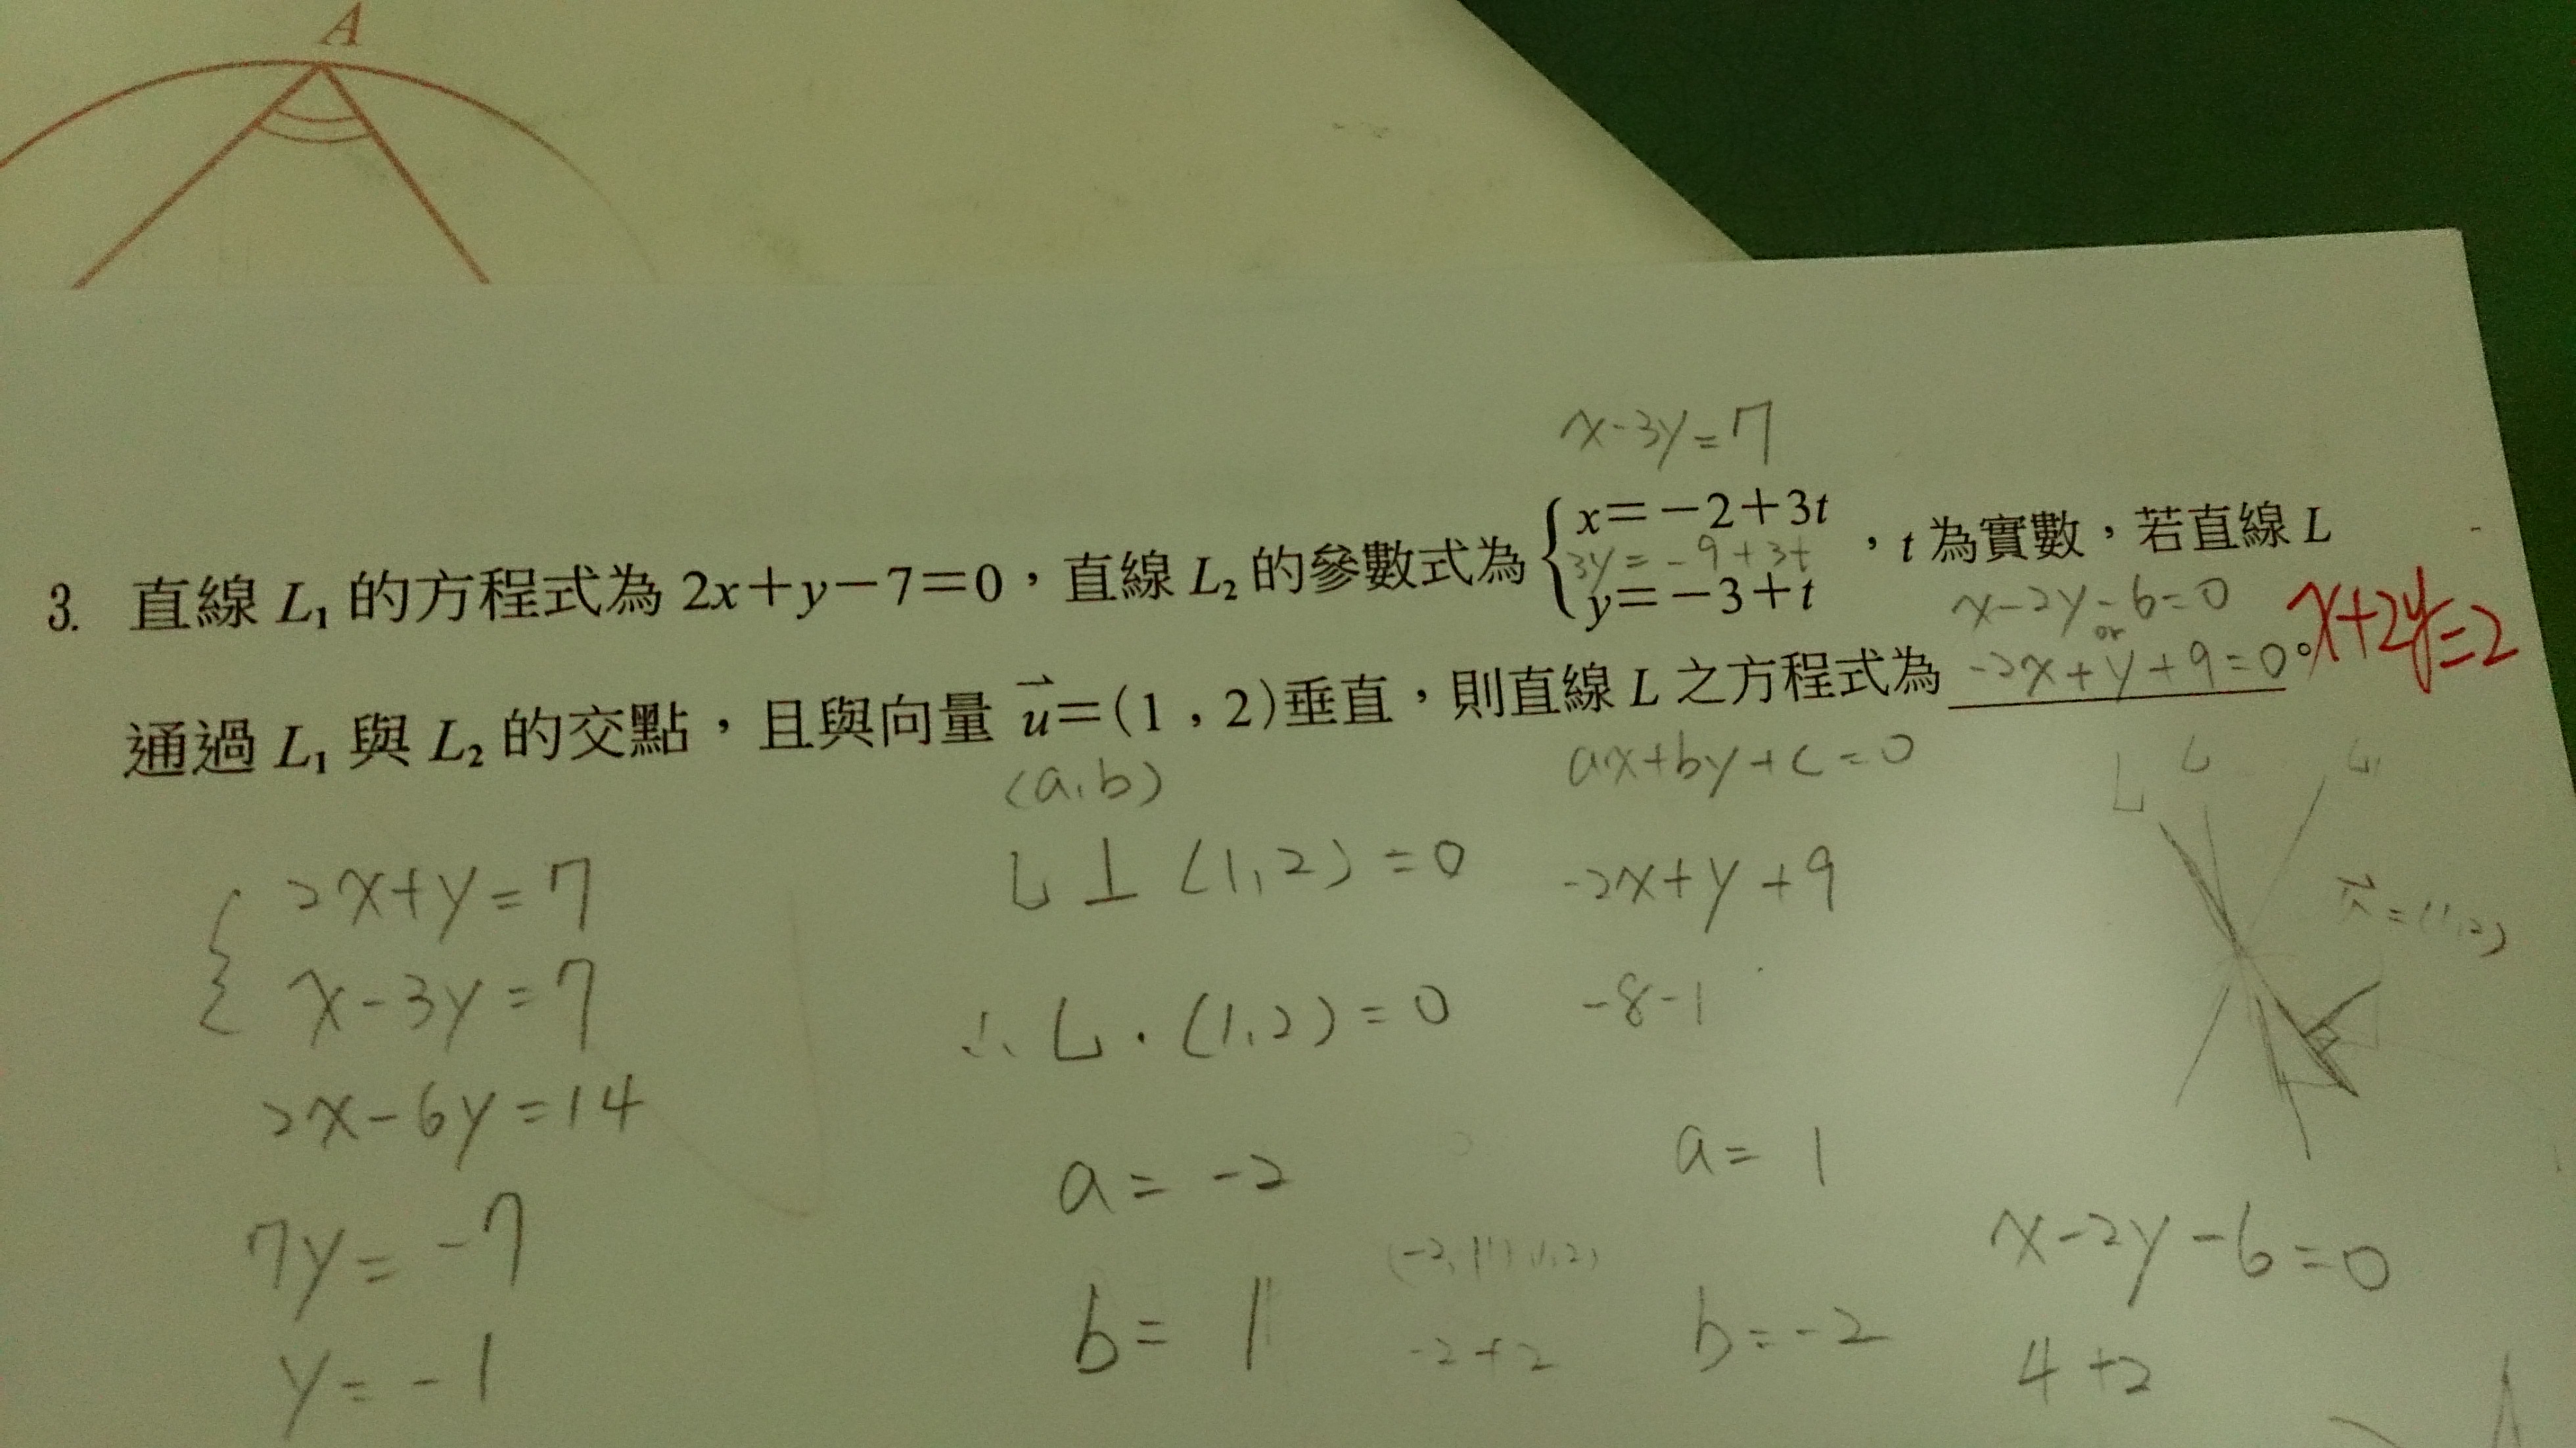 A
x-3y=7
3. 直線 L₁ 的方程式為 2x+y-7=0,直線 L₂ 的參數式為 { x=-2+3t
3y=-9+3t
y=-3+t ,t 為實數,若直線 L
x-2y-6=0
or
通過 L₁ 與 L₂ 的交點,且與向量 u=(1,2)垂直,則直線 L 之方程式為 -2x+y+9=0。 x+2y=2
(a,b)
ax+by+c=0
2x+y=7
x-3y=7
2x-6y=14
7y=-7
y=-1
L⊥(1,2)=0
∴ L·(1,2)=0
a=-2
b=1
-2+2
-2x+y+9
-8-1
a=1
b=-2
L
=(1,2)
x-2y-6=0
4+2